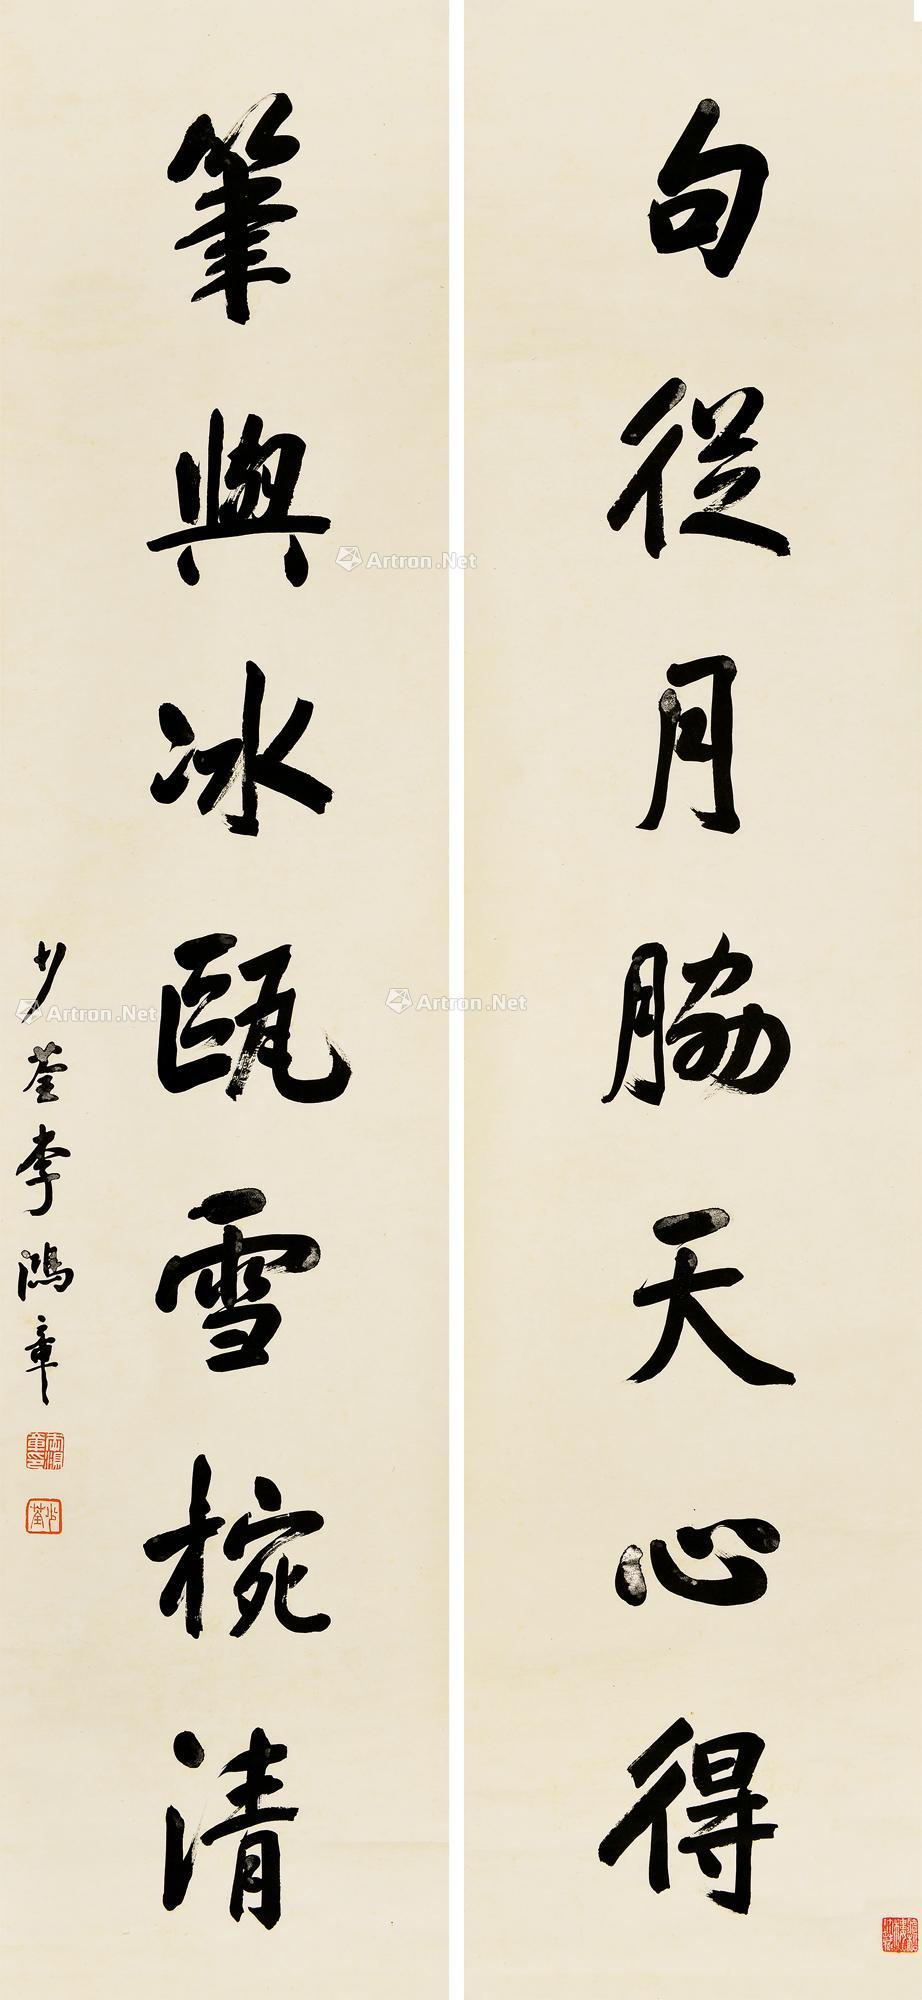 句從月脇天心得
筆與冰甌雪椀清
少荃李鴻章
少荃
Artron.Net
Artron.Net
Artron.Net